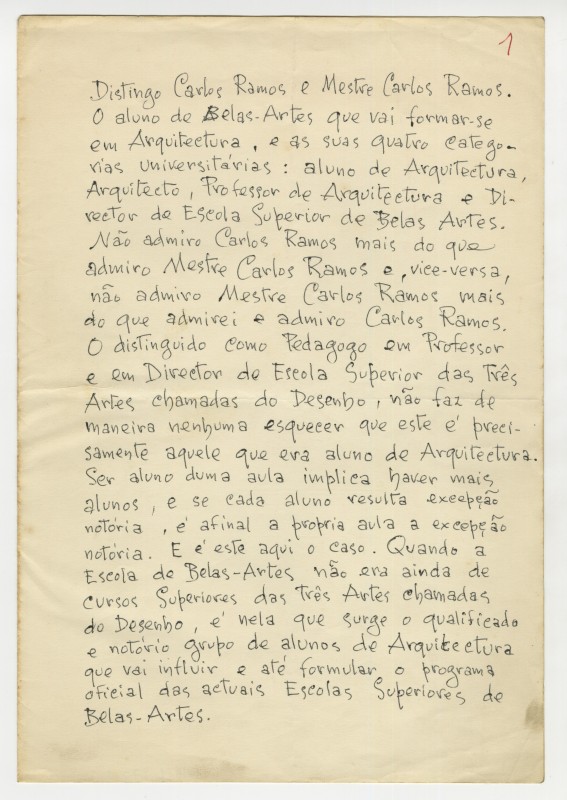 1
Distingo Carlos Ramos e Mestre Carlos Ramos.
O aluno de Belas-Artes que vai formar-se
em Arquitectura, e as suas quatro catego-
rias universitárias: aluno de Arquitectura,
Arquitecto, Professor de Arquitectura e Di-
rector de Escola Superior de Belas Artes.
Não admiro Carlos Ramos mais do que
admiro Mestre Carlos Ramos e, vice-versa,
não admiro Mestre Carlos Ramos mais
do que admirei e admiro Carlos Ramos.
O distinguido como Pedagogo em Professor
e em Director de Escola Superior das Três
Artes chamadas do Desenho, não faz de
maneira nenhuma esquecer que este é preci-
samente aquele que era aluno de Arquitectura.
Ser aluno duma aula implica haver mais
alunos, e se cada aluno resulta excepção
notória, é afinal a propria aula a excepção
notória. E é este aqui o caso. Quando a
Escola de Belas-Artes não era ainda de
cursos Superiores das Três Artes chamadas
do Desenho, é nela que surge o qualificado
e notório grupo de alunos de Arquitectura
que vai influir e até formular o programa
oficial das actuais Escolas Superiores de
Belas-Artes.